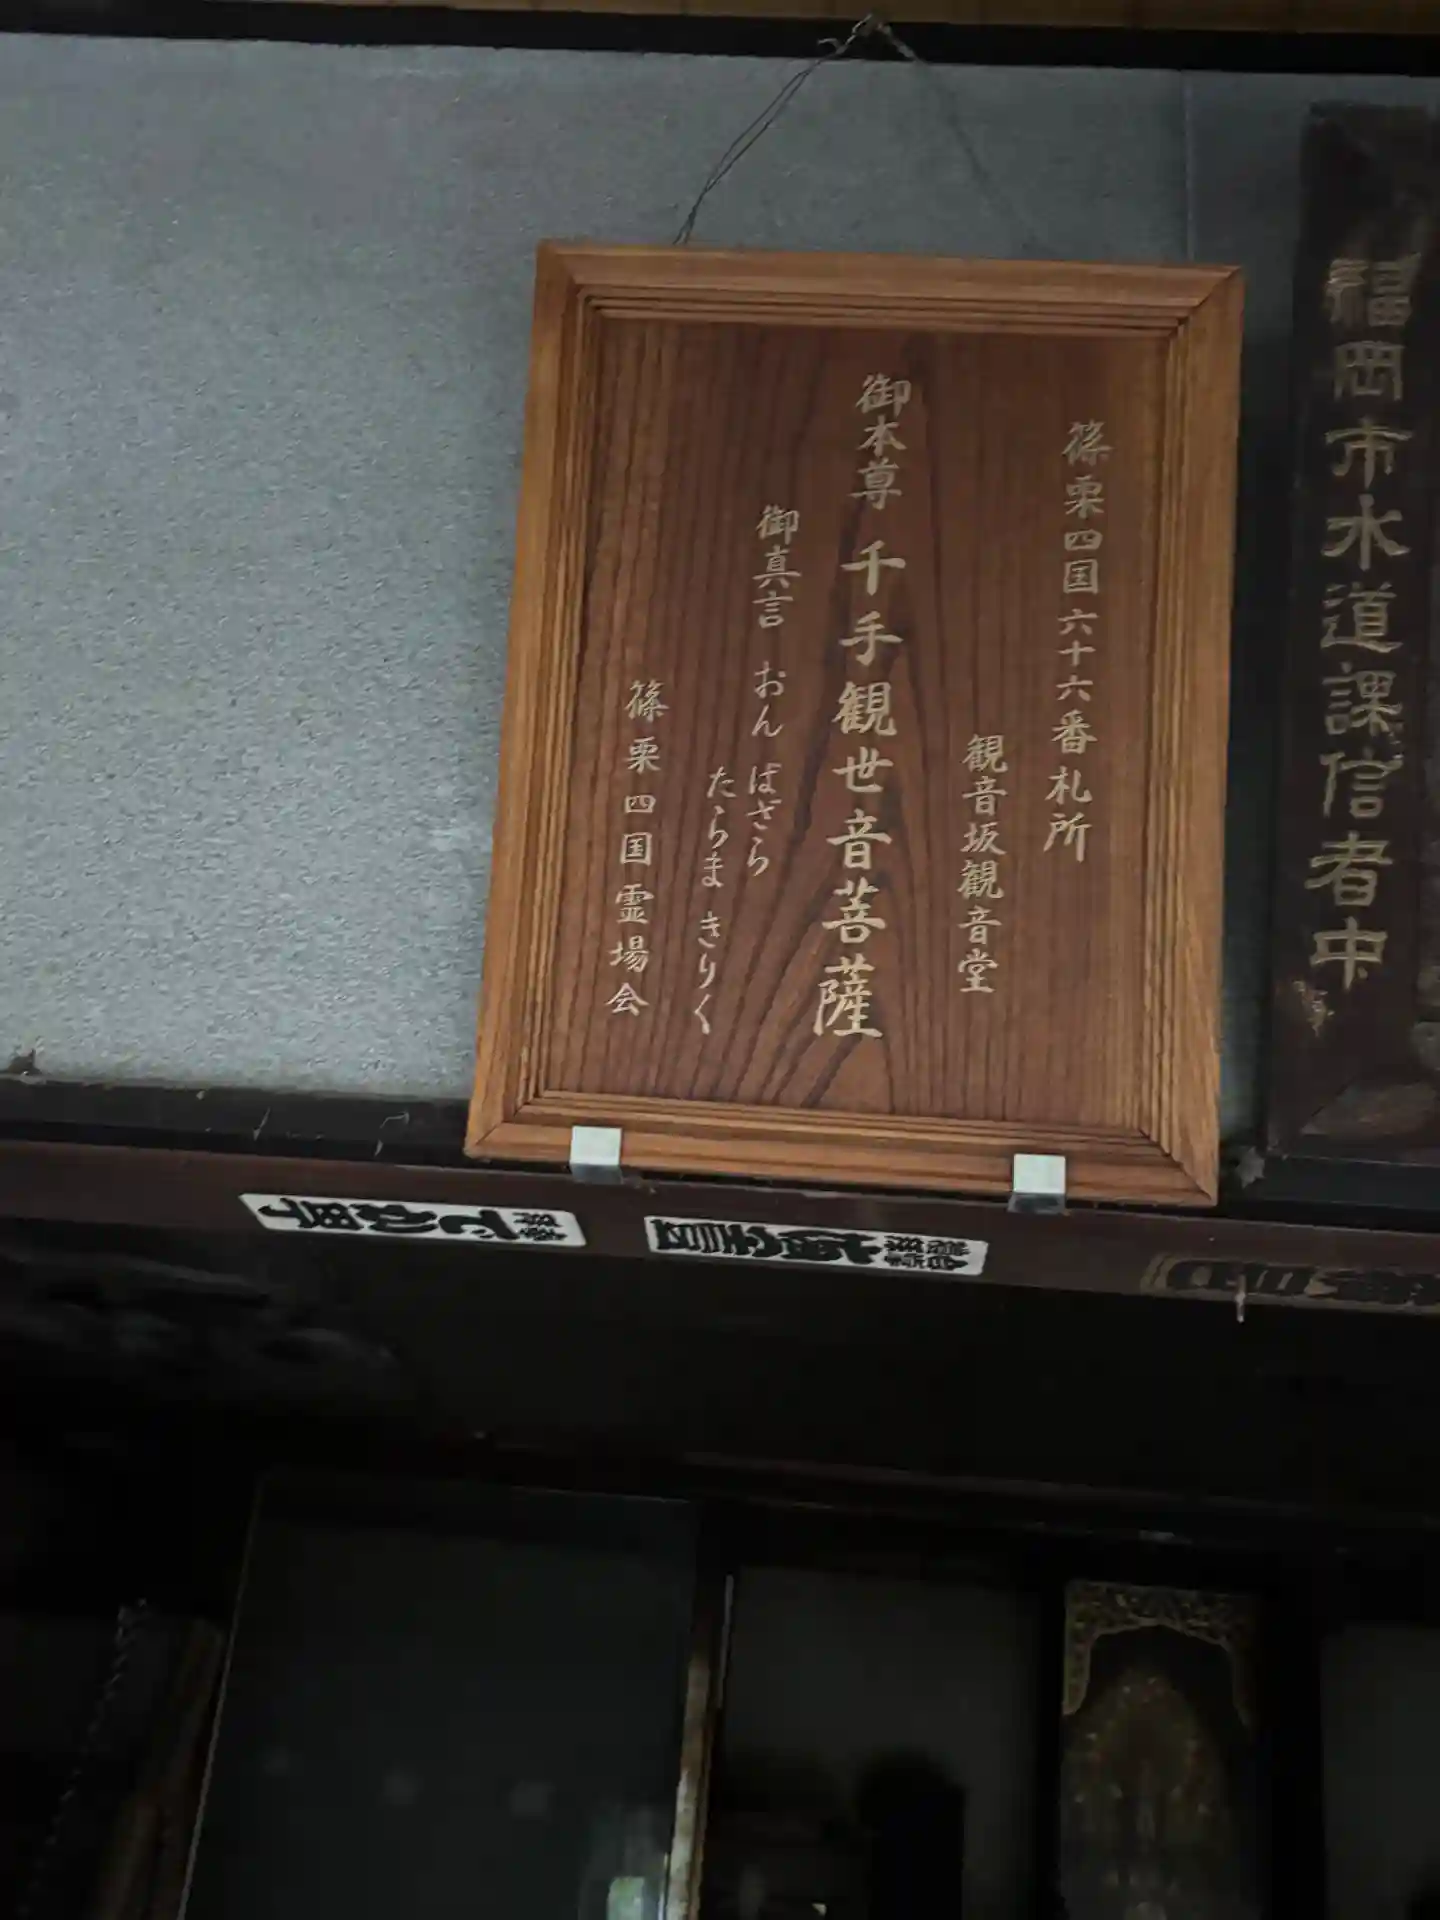 福岡市水道課信者中
篠栗四国六十六番札所
観音坂観音堂
御本尊 千手観世音菩薩
御真言 おん ばざら
たらま きりく
篠栗四国霊場会